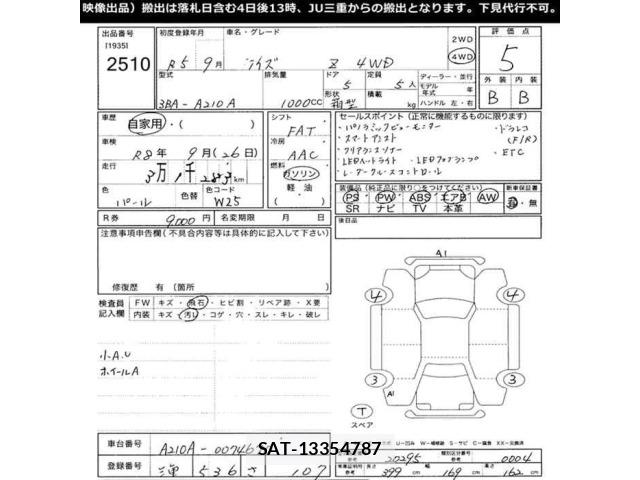 映像出品）搬出は落札日含む4日後13時、JU三重からの搬出となります。下見代行不可。
出品番号
[1935]
2510
初度登録年月
R5年9月
車名・グレード
ライズ Z 4WD
2WD
4WD
評価点
5
型式
3BA-A210A
排気量
1000CC
ドア
5
形状
箱型
定員
5人
積載
kg
ディーラー・並行
モデル年式 年
ハンドル 左・右
外装
内装
B
B
車歴
自家用・( )
車検
R8年9月(26日)
走行
3万1千283km
色
パール
色替
色コード
W25
シフト
FAT
冷房
AAC
燃料
ガソリン
軽油
( )
セールスポイント（正常に機能するものに限ります）
・パノラミックビューモニター
・ドラレコ
(F/R)
・スマートアシスト
・クリアランスソナー
・ETC
・LEDヘッドライト ・LEDフォグランプ
・レーダークルーズコントロール
装備品（純正品に限り○をつけてください）
PS PW ABS エアB AW
SR ナビ TV 本革
新車保証書
有・無
R券
9000円
名変期限 月 日
後日品
注意事項申告欄(不具合内容等は具体的に記入して下さい)
修復歴 有(箇所 )
検査員記入欄
FW キズ・飛石・ヒビ割・リペア跡・X要
内装 キズ・汚れ・コゲ・穴・スレ・キレ・破レ
小A.U
ホイールA
A1
4
4
3
3
A1
T
スペア
車台番号
A210A-00746
SAT-13354787
登録番号
三重 536 さ 107
参考
20295
類別区分番号
参考
0004
長さ
399
cm
幅
169
cm
高さ
162
cm